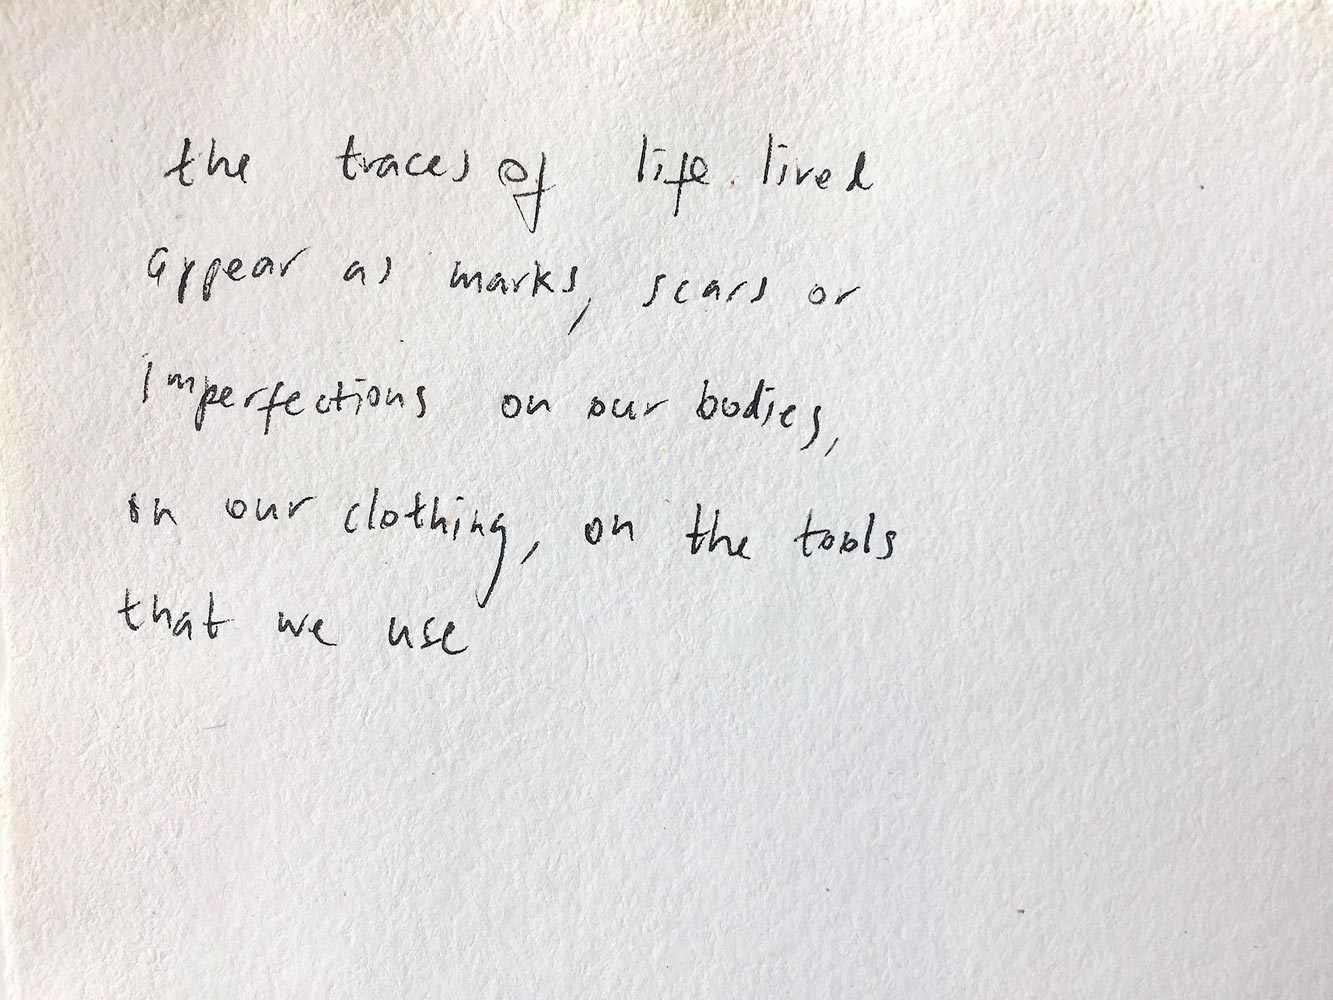 the traces of life lived
appear as marks, scars or
imperfections on our bodies,
in our clothing, on the tools
that we use